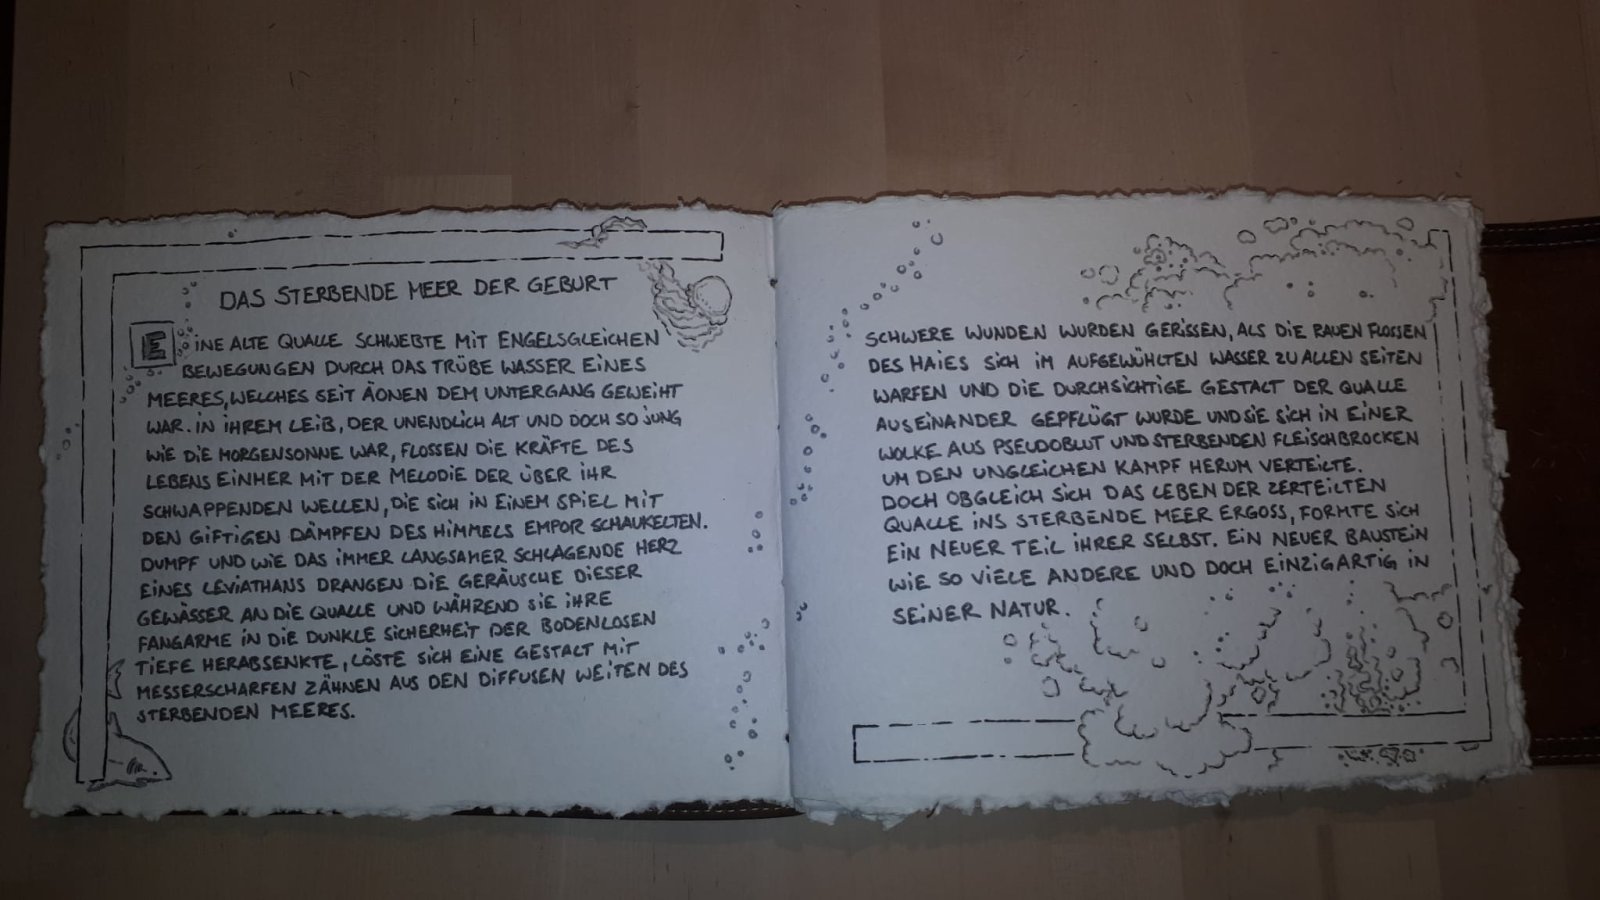 DAS STERBENDE MEER DER GEBURT
EINE ALTE QUALLE SCHWEBTE MIT ENGELSGLEICHEN
BEWEGUNGEN DURCH DAS TRÜBE WASSER EINES
MEERES, WELCHES SEIT ÄONEN DEM UNTERGANG GEWEIHT
WAR. IN IHREM LEIB, DER UNENDLICH ALT UND DOCH SO JUNG
WIE DIE MORGENSONNE WAR, FLOSSEN DIE KRÄFTE DES
LEBENS EINHER MIT DER MELODIE DER ÜBER IHR
SCHWAPPENDEN WELLEN, DIE SICH IN EINEM SPIEL MIT
DEN GIFTIGEN DÄMPFEN DES HIMMELS EMPOR SCHAUKELTEN.
DUMPF UND WIE DAS IMMER LANGSAMER SCHLAGENDE HERZ
EINES LEVIATHANS DRANGEN DIE GERÄUSCHE DIESER
GEWÄSSER AN DIE QUALLE UND WÄHREND SIE IHRE
FANGARME IN DIE DUNKLE SICHERHEIT DER BODENLOSEN
TIEFE HERABSENKTE, LÖSTE SICH EINE GESTALT MIT
MESSERSCHARFEN ZÄHNEN AUS DEN DIFFUSEN WEITEN DES
STERBENDEN MEERES.
SCHWERE WUNDEN WURDEN GERISSEN, ALS DIE RAUEN FLOSSEN
DES HAIES SICH IM AUFGEWÜHLTEN WASSER ZU ALLEN SEITEN
WARFEN UND DIE DURCHSICHTIGE GESTALT DER QUALLE
AUSEINANDER GEPFLÜGT WURDE UND SIE SICH IN EINER
WOLKE AUS PSEUDOBLUT UND STERBENDEN FLEISCHBROCKEN
UM DEN UNGLEICHEN KAMPF HERUM VERTEILTE.
DOCH OBGLEICH SICH DAS LEBEN DER ZERTEILTEN
QUALLE INS STERBENDE MEER ERGOSS, FORMTE SICH
EIN NEUER TEIL IHRER SELBST. EIN NEUER BAUSTEIN
WIE SO VIELE ANDERE UND DOCH EINZIGARTIG IN
SEINER NATUR.